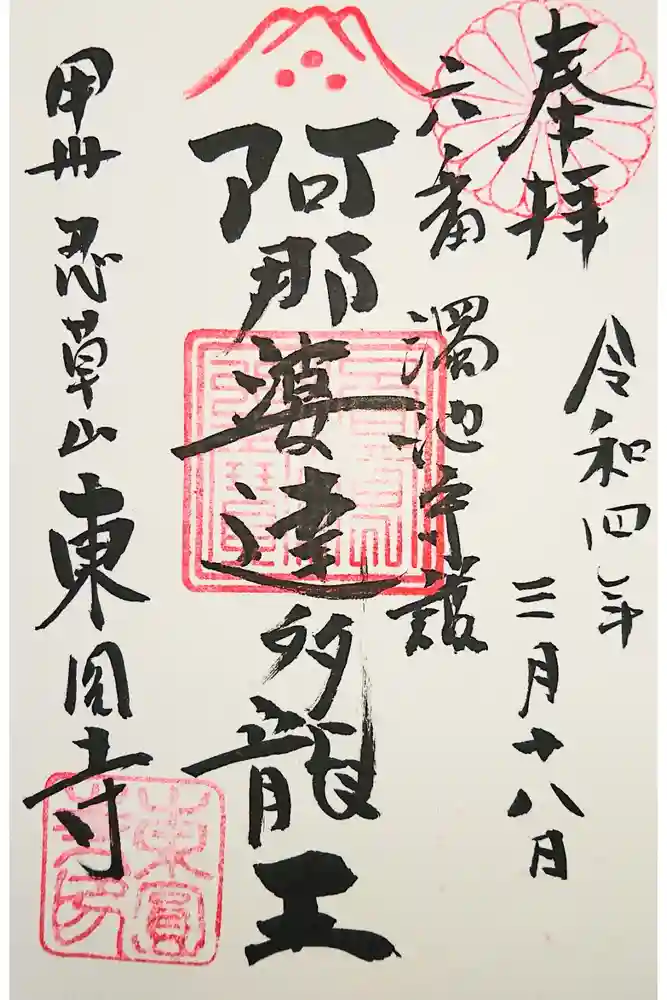 奉拝
令和四年
三月十八日
六番
濁池守護
阿那婆達多龍王
甲州 忍草山 東円寺